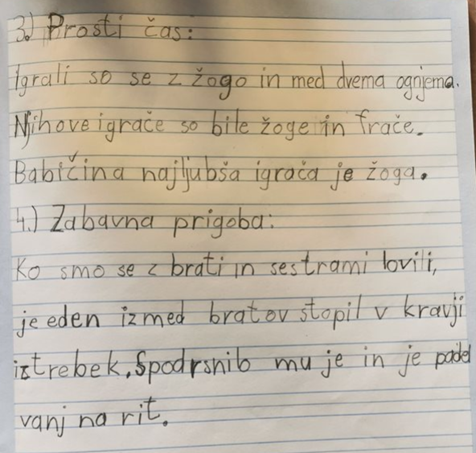 3.) Prosti čas:
Igrali so se z žogo in med dvema ognjema.
Njihove igrače so bile žoge in frače.
Babičina najljubša igrača je žoga.
4.) Zabavna prigoba:
Ko smo se z brati in sestrami lovili,
je eden izmed bratov stopil v kravji
iztrebek. Spodrsnilo mu je in je padel
vanj na rit.